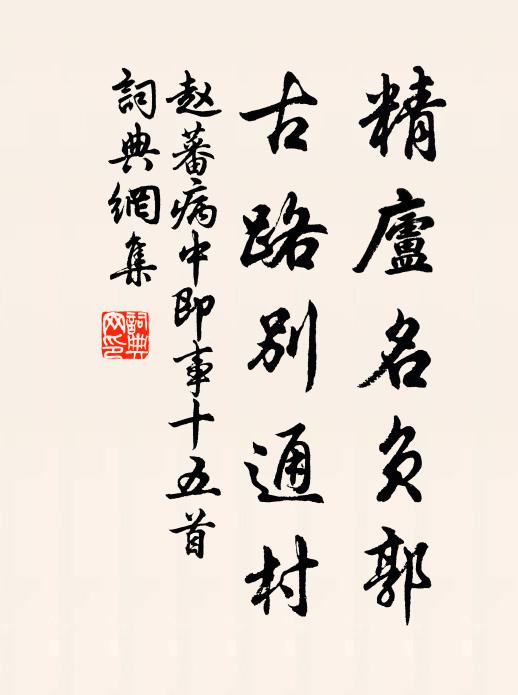 精廬名负郭
古路别通村
赵蕃病中即事十五首
詞典網集
詞典網印